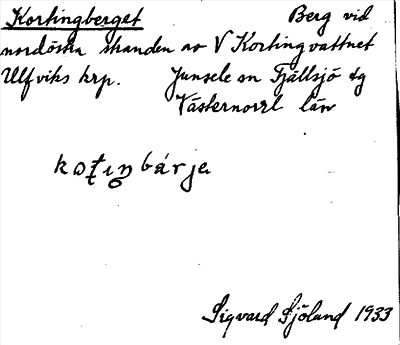 Kortingberget Berg vid
nordöstra stranden av V Kortingvattnet
Ulfviks krp. Junsele sn Fjällsjö tg
Västernorrl län
kɷʈɩŋbárjə
Sigvard Sjölund 1933